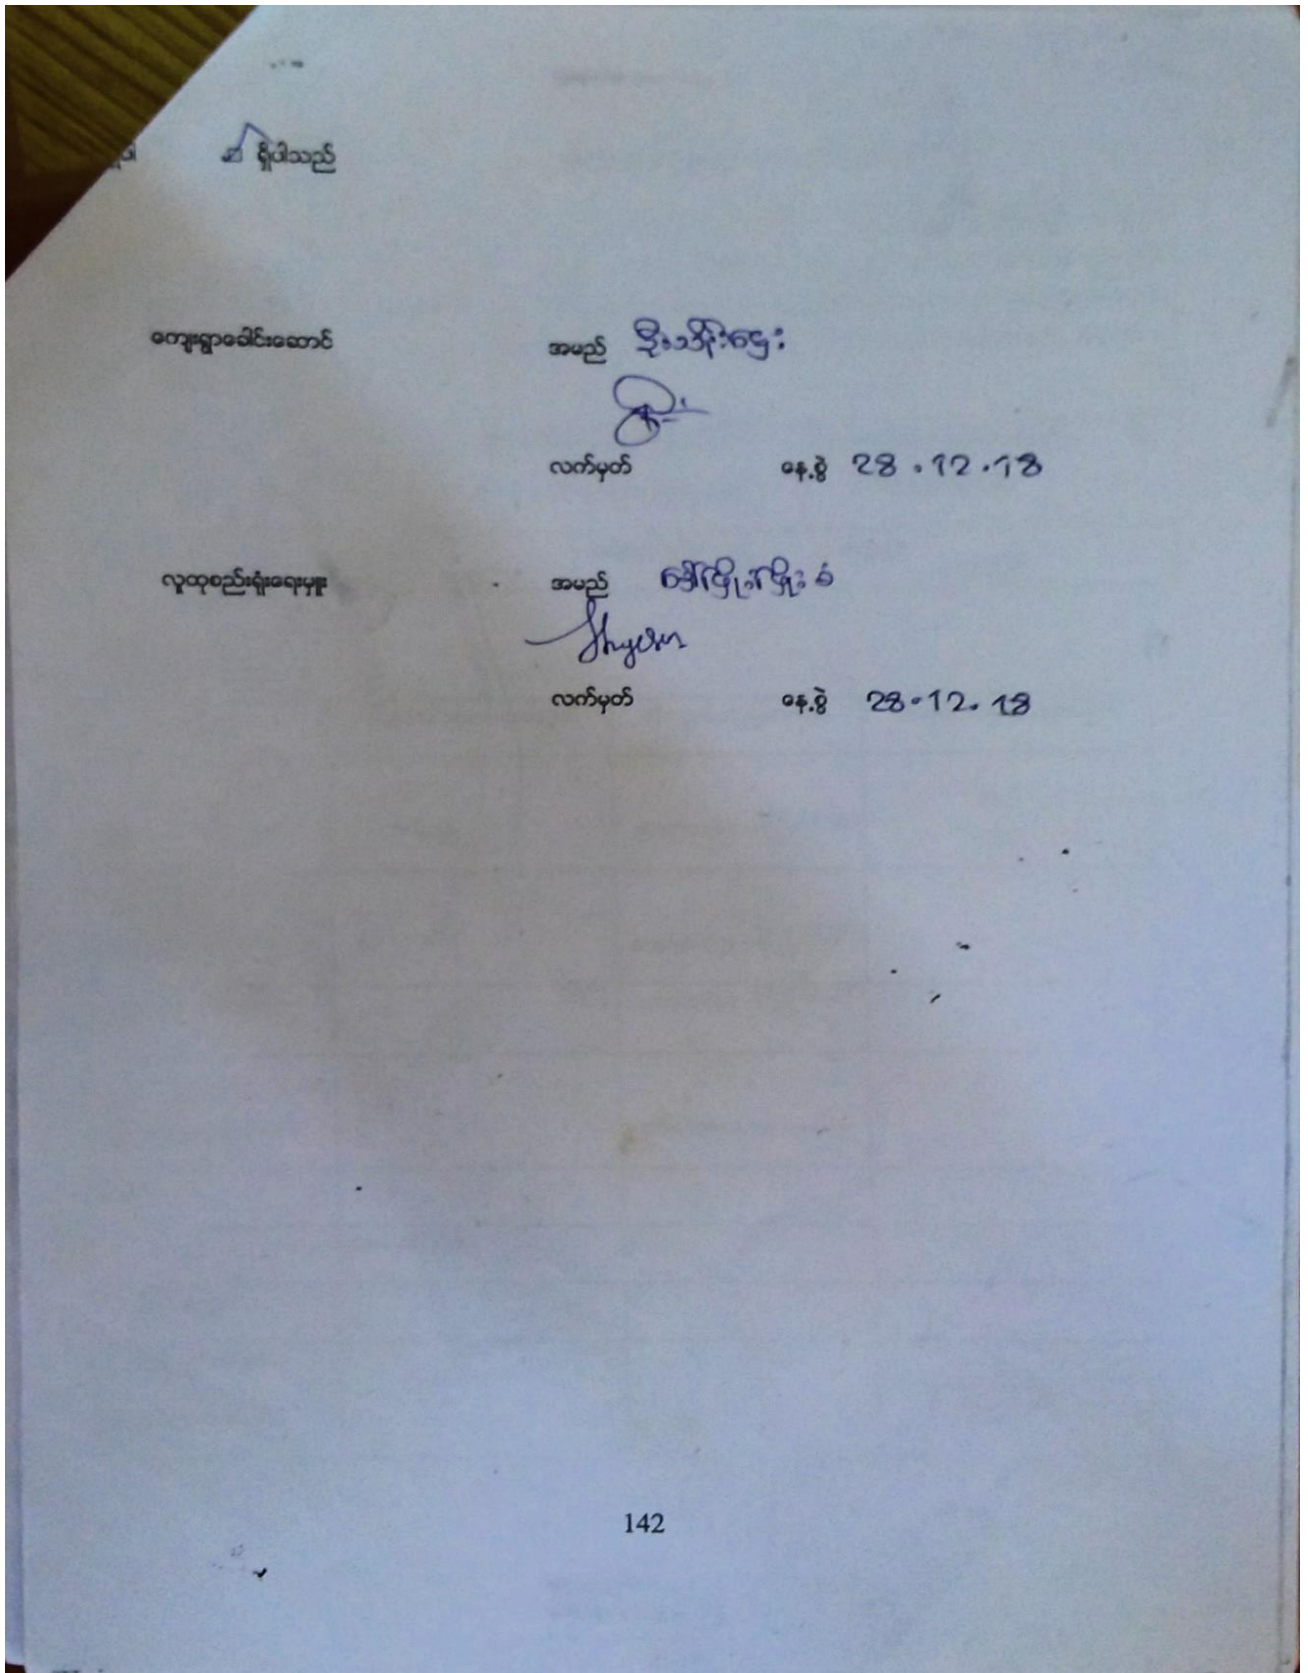 ရှိပါသည်
ကျေးရွာခေါင်းဆောင် အမည် ဦးသိန်းဌေး
လက်မှတ် နေ့စွဲ 28.12.18
လူထုစည်းရုံးရေးမှူး အမည် ဒေါ်ဖြိုးဖြိုးခိုင်
လက်မှတ် နေ့စွဲ 28.12.18
142